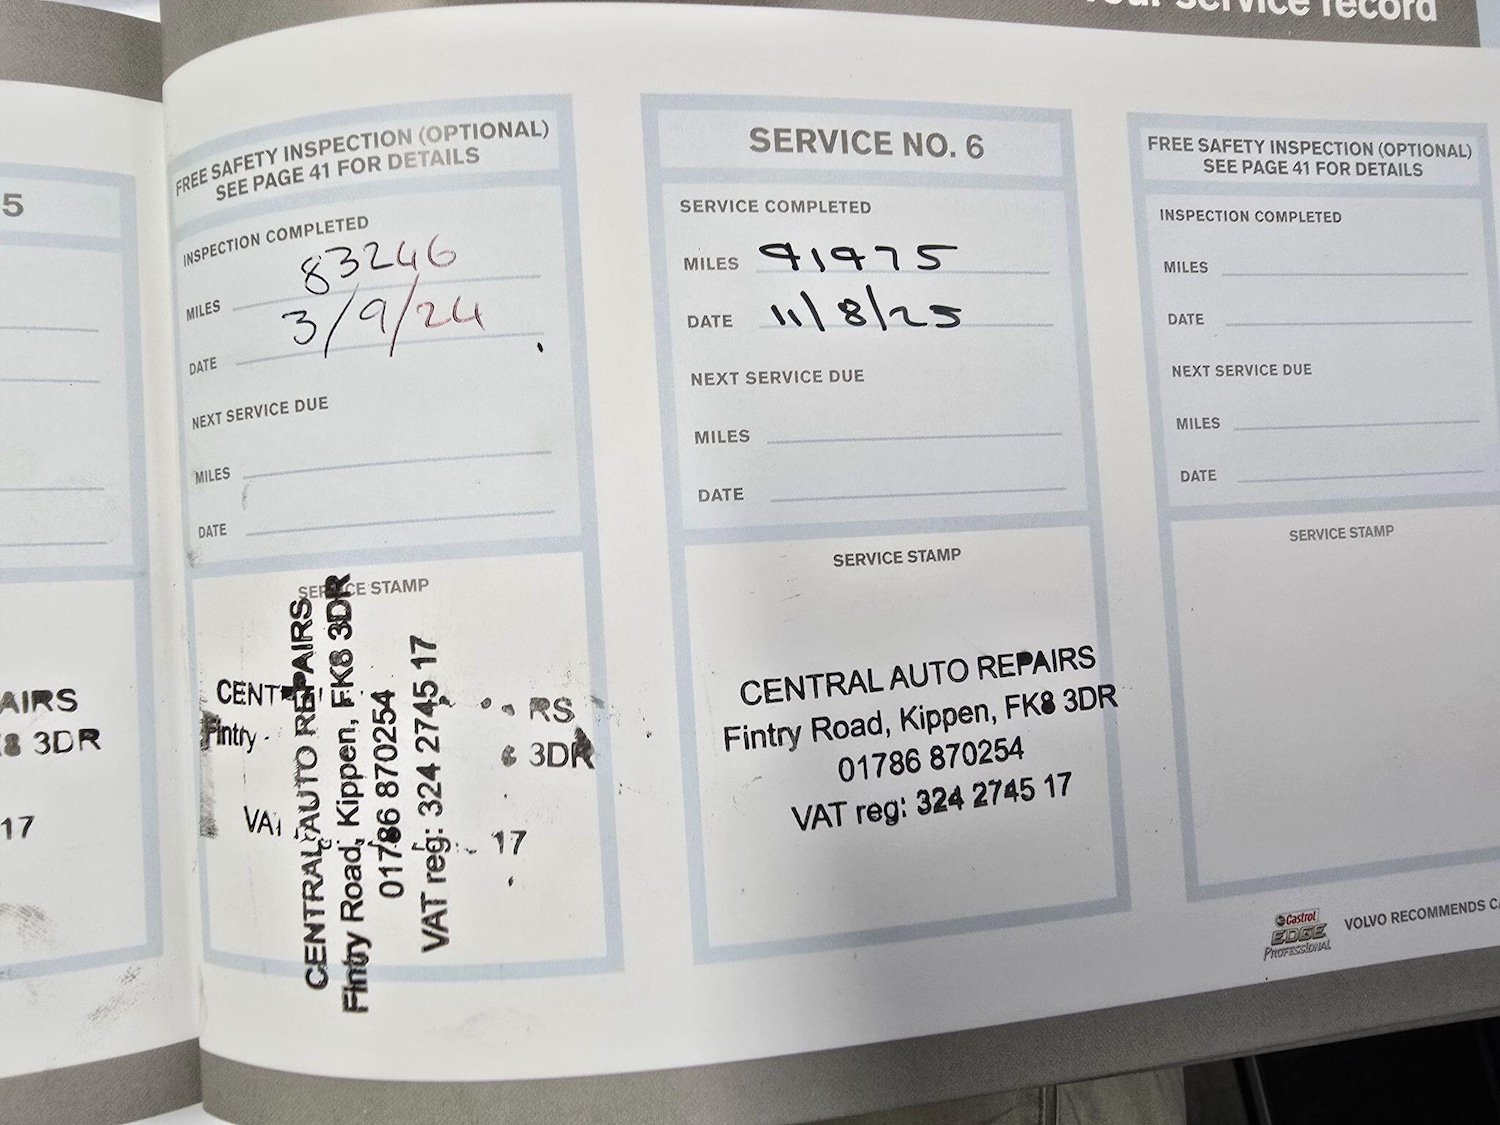 our service record
5
AIRS
8 3DR
17
FREE SAFETY INSPECTION (OPTIONAL)
SEE PAGE 41 FOR DETAILS
INSPECTION COMPLETED
MILES 83246
DATE 3/9/24
NEXT SERVICE DUE
MILES
DATE
SERVICE STAMP
CENT
Fintry
VAT
RS
3DR
17
CENTRAL AUTO REPAIRS
Fintry Road, Kippen, FK8 3DR
01786 870254
VAT reg: 324 2745 17
SERVICE NO. 6
SERVICE COMPLETED
MILES 91975
DATE 11/8/25
NEXT SERVICE DUE
MILES
DATE
SERVICE STAMP
CENTRAL AUTO REPAIRS
Fintry Road, Kippen, FK8 3DR
01786 870254
VAT reg: 324 2745 17
FREE SAFETY INSPECTION (OPTIONAL)
SEE PAGE 41 FOR DETAILS
INSPECTION COMPLETED
MILES
DATE
NEXT SERVICE DUE
MILES
DATE
SERVICE STAMP
Castrol
EDGE
PROFESSIONAL
VOLVO RECOMMENDS